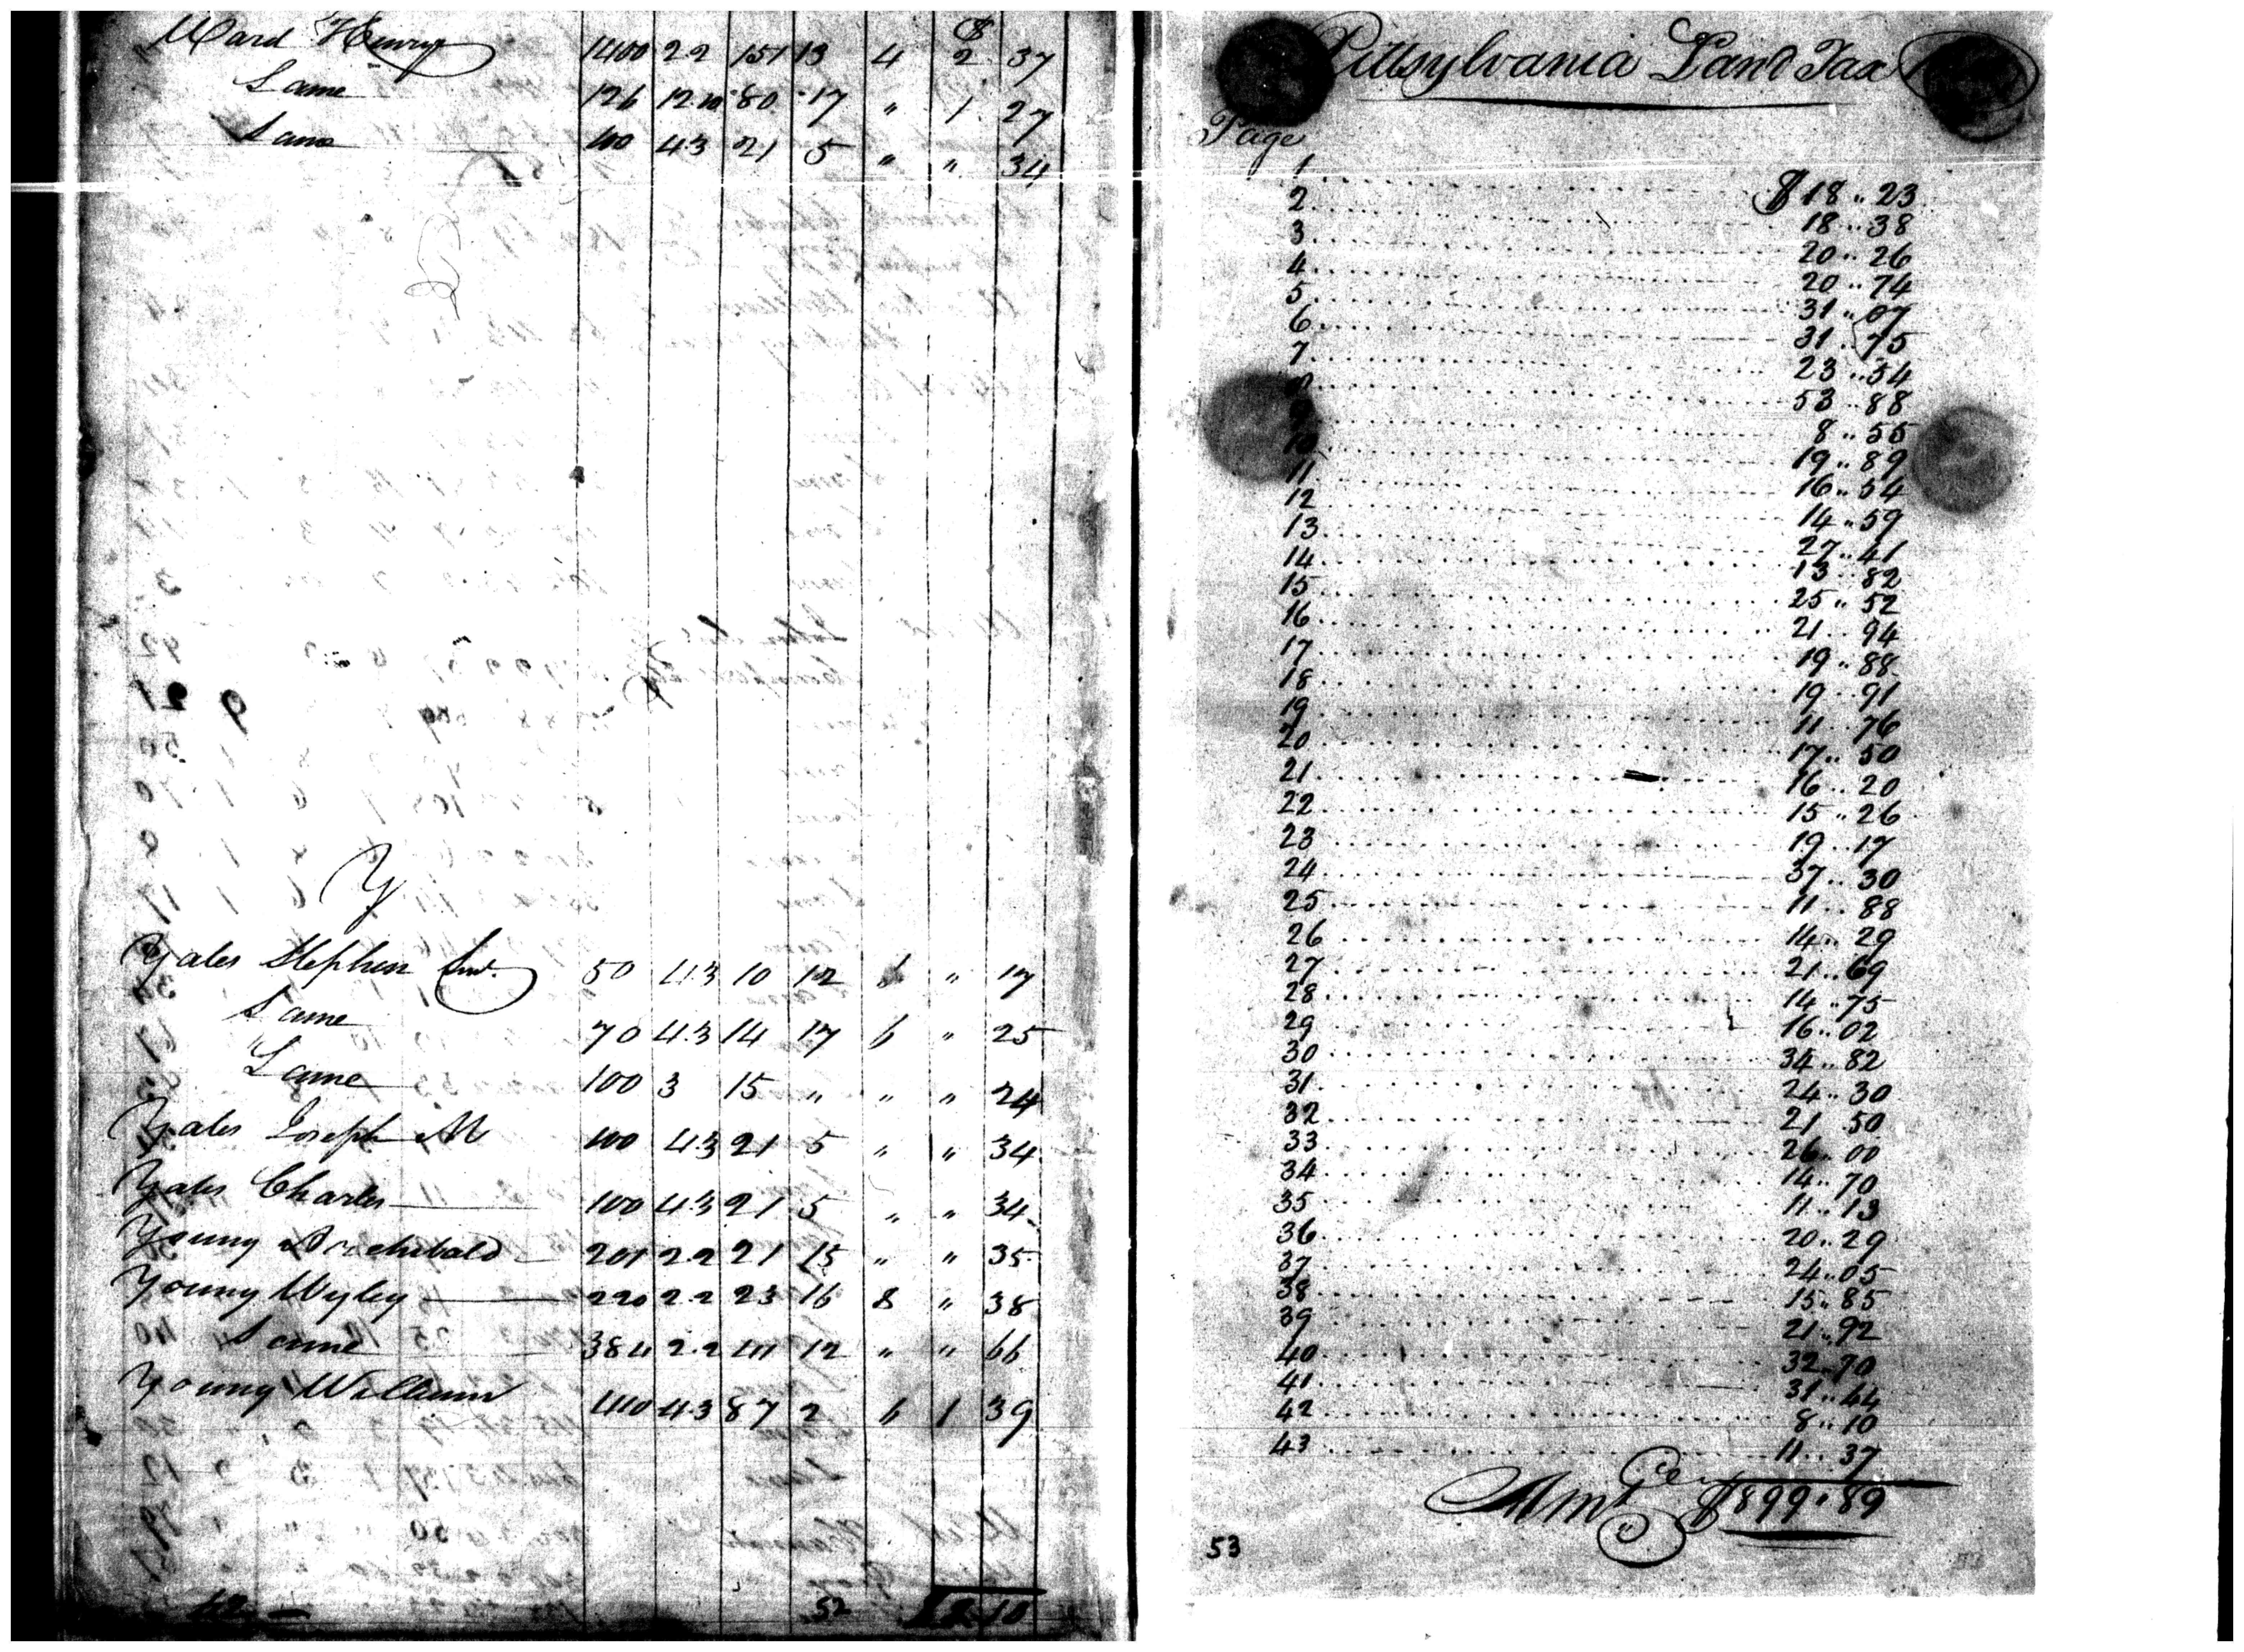 $
Ward Henry 1400 2.2 151 13 4 2 37
Same 126 12.10 80 17 " 1 27
Same 100 4.3 21 5 " " 34
Y
Yates Stephen Snr. 50 4.3 10 12 6 " 17
Same 70 4.3 14 17 6 " 25
Same 100 3 15 " " " 24
Yates Joseph M 100 4.3 21 5 " " 34
Yates Charles 100 4.3 21 5 " " 34
Young Archibald 201 2.2 21 15 " " 35
Young Wyley 220 2.2 23 16 8 " 38
Same 384 2.2 41 12 " " 66
Young William 410 4.3 87 2 6 1 39
52 10
Pittsylvania Land Tax
Page
1 $18 " 23
2 18 " 38
3 20 " 26
4 20 " 74
5 31 " 07
6 31 " 75
7 23 " 54
8 53 " 88
9 8 " 55
10 19 " 89
11 16 " 54
12 14 " 59
13 27 " 41
14 13 " 82
15 25 " 52
16 21 " 94
17 19 " 88
18 19 " 91
19 11 " 76
20 17 " 50
21 16 " 20
22 15 " 26
23 19 " 17
24 37 " 30
25 11 " 88
26 14 " 29
27 21 " 69
28 14 " 75
29 16 " 02
30 34 " 82
31 24 " 30
32 21 " 50
33 26 " 00
34 14 " 70
35 11 " 13
36 20 " 29
37 24 " 05
38 15 " 85
39 21 " 92
40 32 " 70
41 31 " 44
42 8 " 10
43 11 " 37
Amt $899 " 89
53